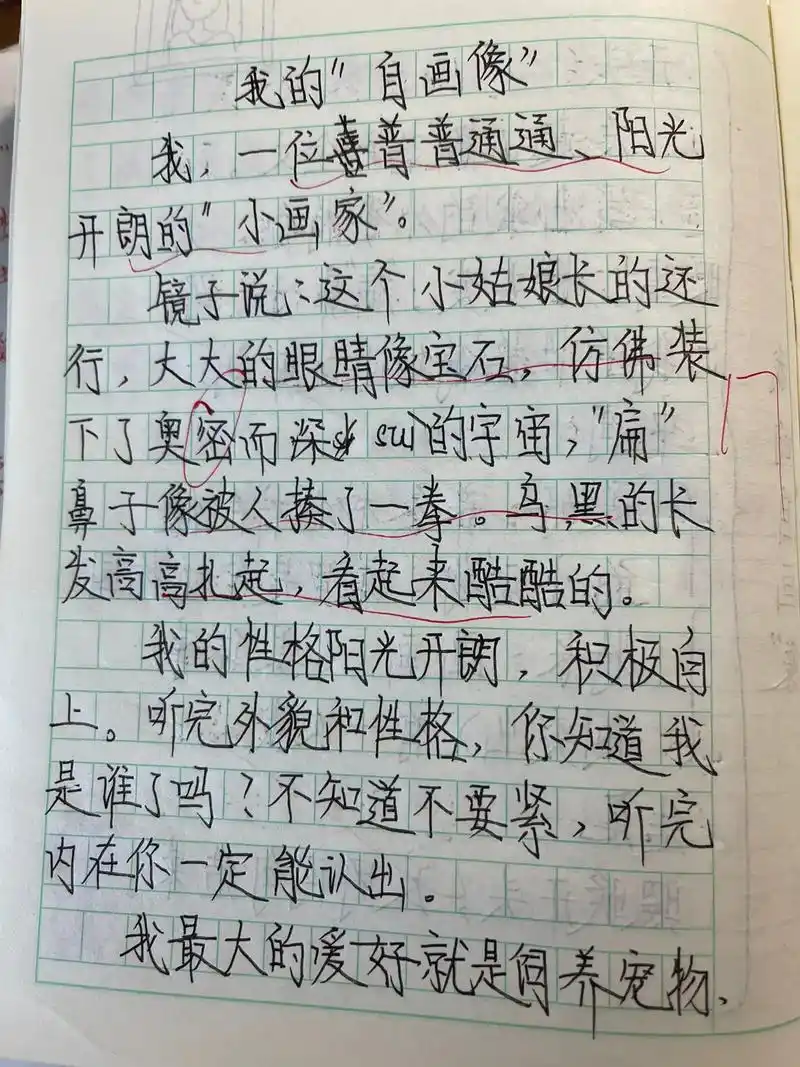 我的"自画像"
我,一位普普通通、阳光
开朗的"小画家"。
镜子说:这个小姑娘长的还
行,大大的眼睛像宝石,仿佛装
下了奥密而深sui的宇宙,"扁"
鼻子像被人揍了一拳。乌黑的长
发高高扎起,看起来酷酷的。
我的性格阳光开朗,积极自
上。听完外貌和性格,你知道我
是谁了吗?不知道不要紧,听完
内在你一定能认出。
我最大的爱好就是饲养宠物、